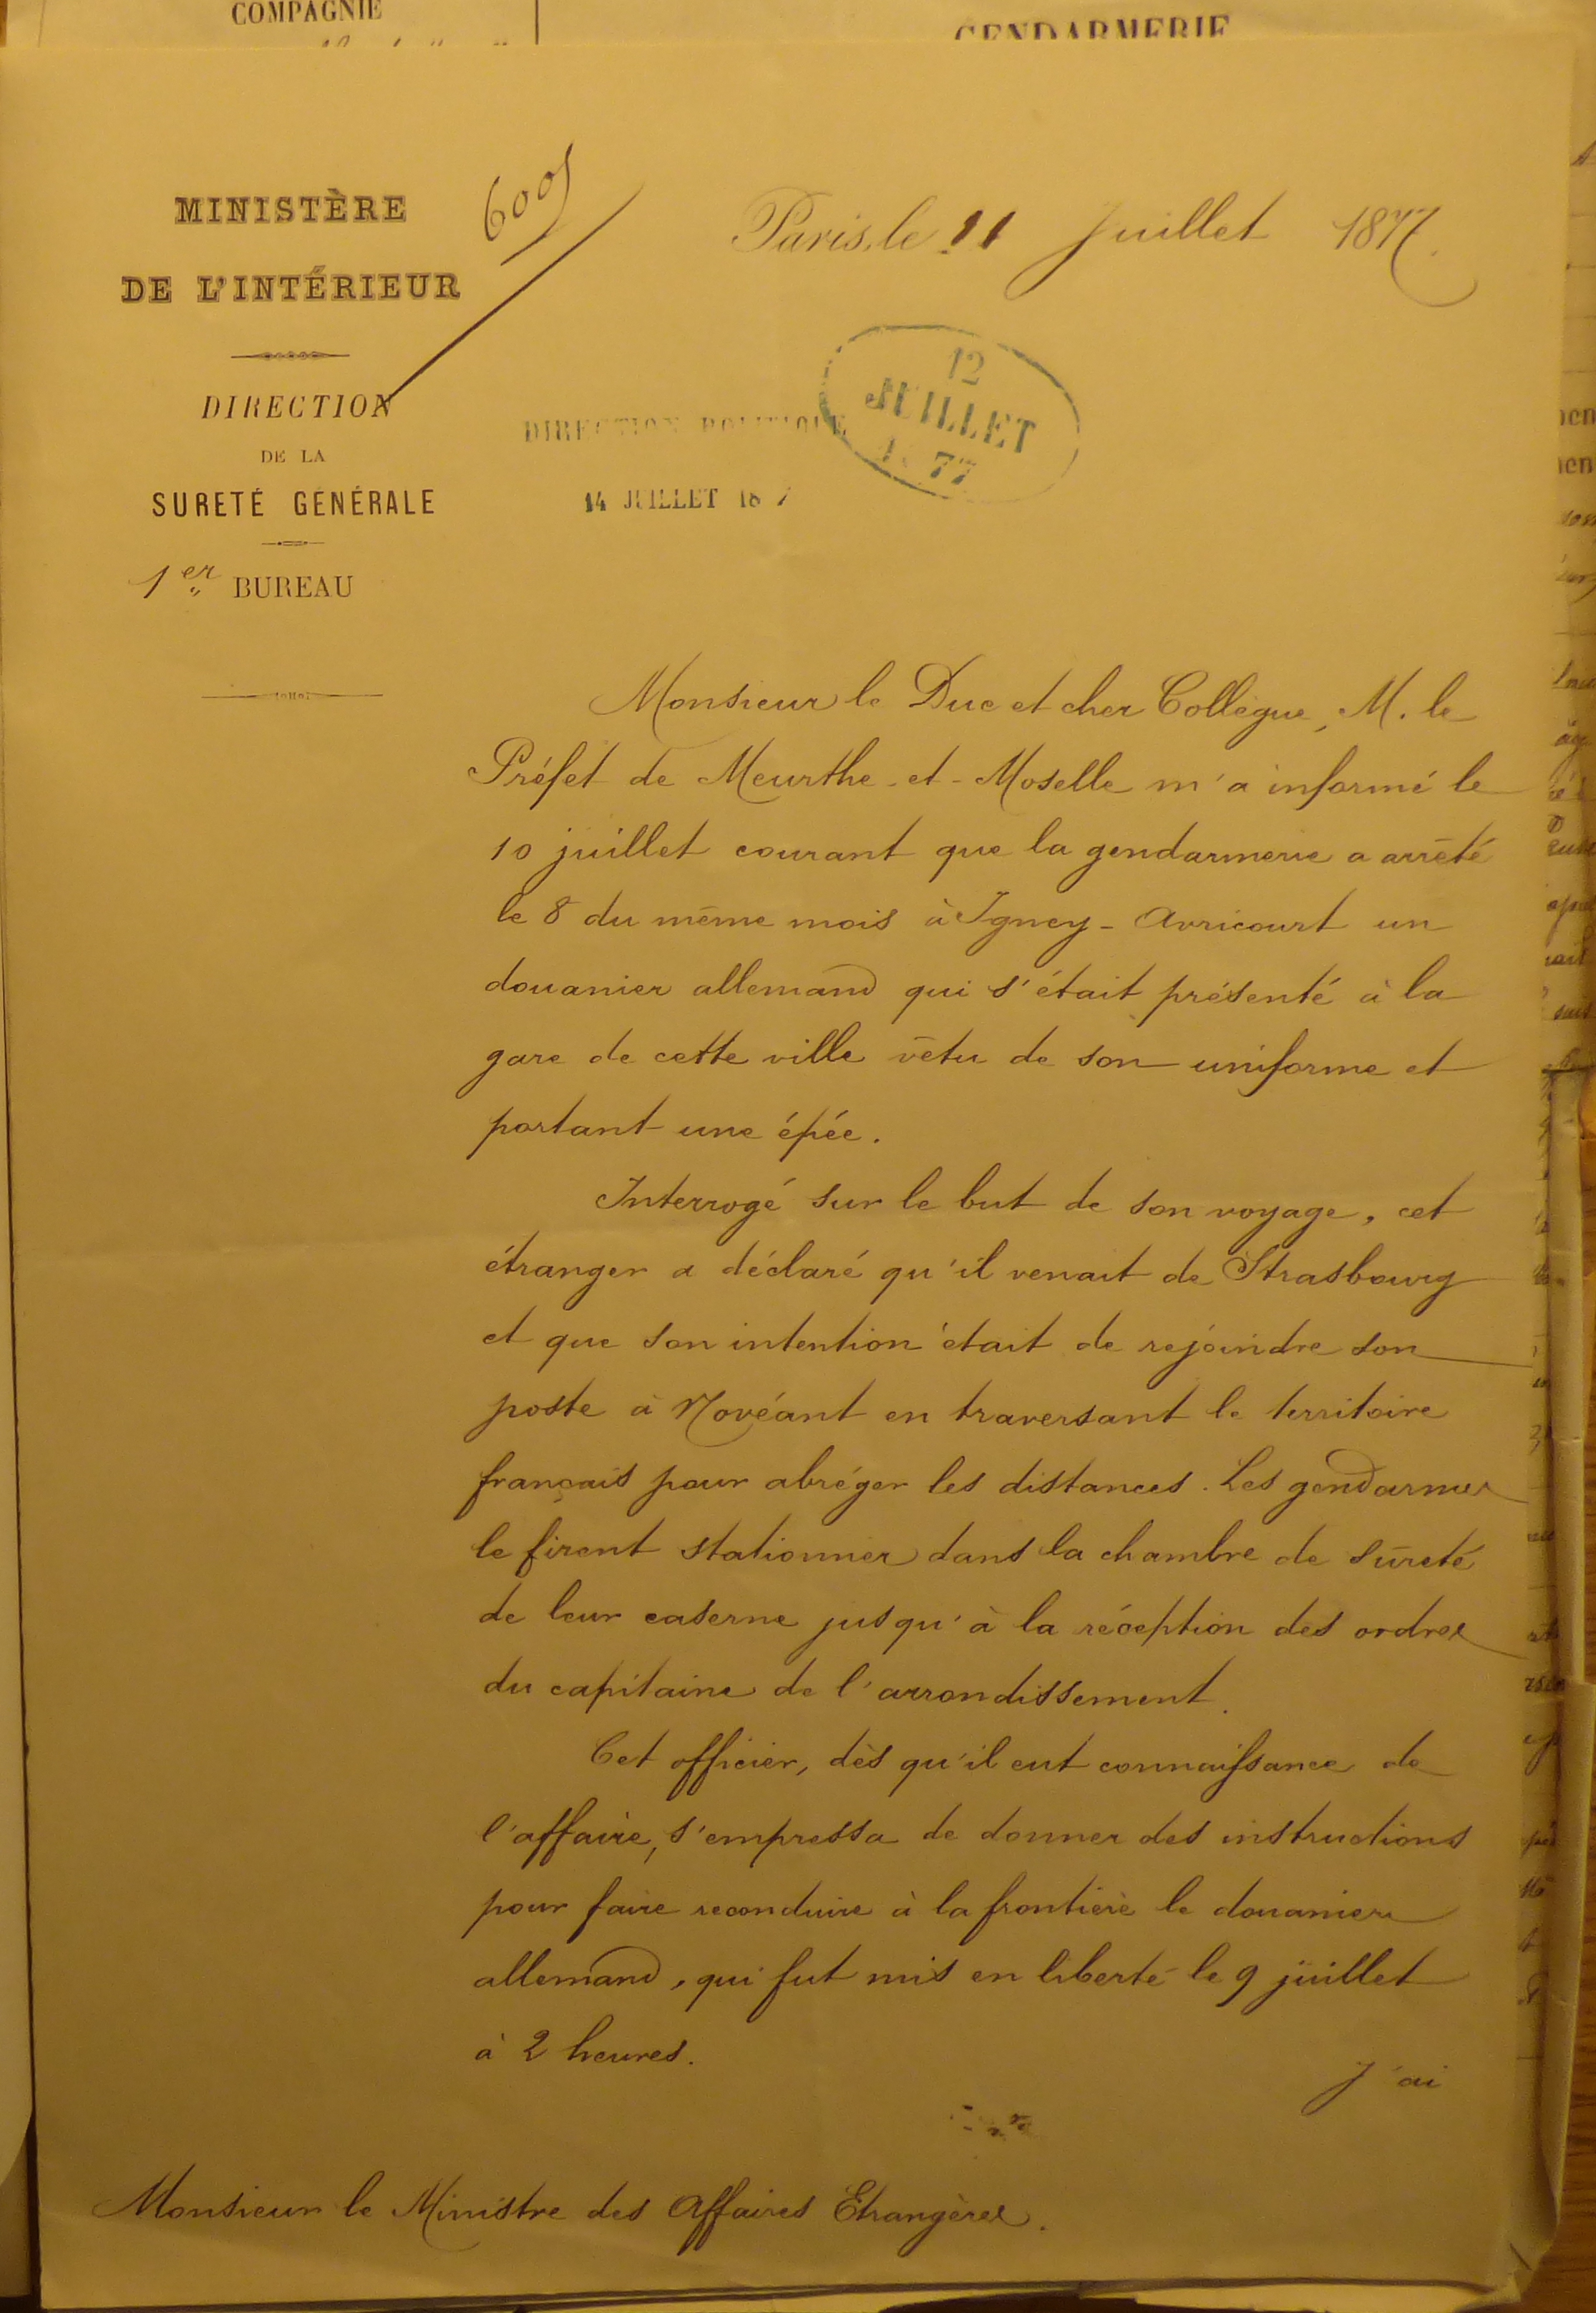 COMPAGNIE
GENDARMERIE
MINISTÈRE
DE L'INTÉRIEUR
DIRECTION
DE LA
SURETÉ GÉNÉRALE
1er BUREAU
Paris, le 11 Juillet 1877.
12
JUILLET
1877
DIRECTION POLITIQUE
14 JUILLET 187
Monsieur le Duc et cher Collègue, M. le
Préfet de Meurthe-et-Moselle m'a informé le
10 juillet courant que la gendarmerie a arrêté
le 8 du même mois à Igney-Avricourt un
douanier allemand qui s'était présenté à la
gare de cette ville vêtu de son uniforme et
portant une épée.
Interrogé sur le but de son voyage, cet
étranger a déclaré qu'il venait de Strasbourg
et que son intention était de rejoindre son
poste à Novéant en traversant le territoire
français pour abréger les distances. Les gendarmes
le firent stationner dans la chambre de sûreté
de leur caserne jusqu'à la réception des ordres
du capitaine de l'arrondissement.
Cet officier, dès qu'il eut connaissance de
l'affaire, s'empressa de donner des instructions
pour faire reconduire à la frontière le douanier
allemand, qui fut mis en liberté le 9 juillet
à 2 heures.
J'ai
Monsieur le Ministre des Affaires Etrangères.